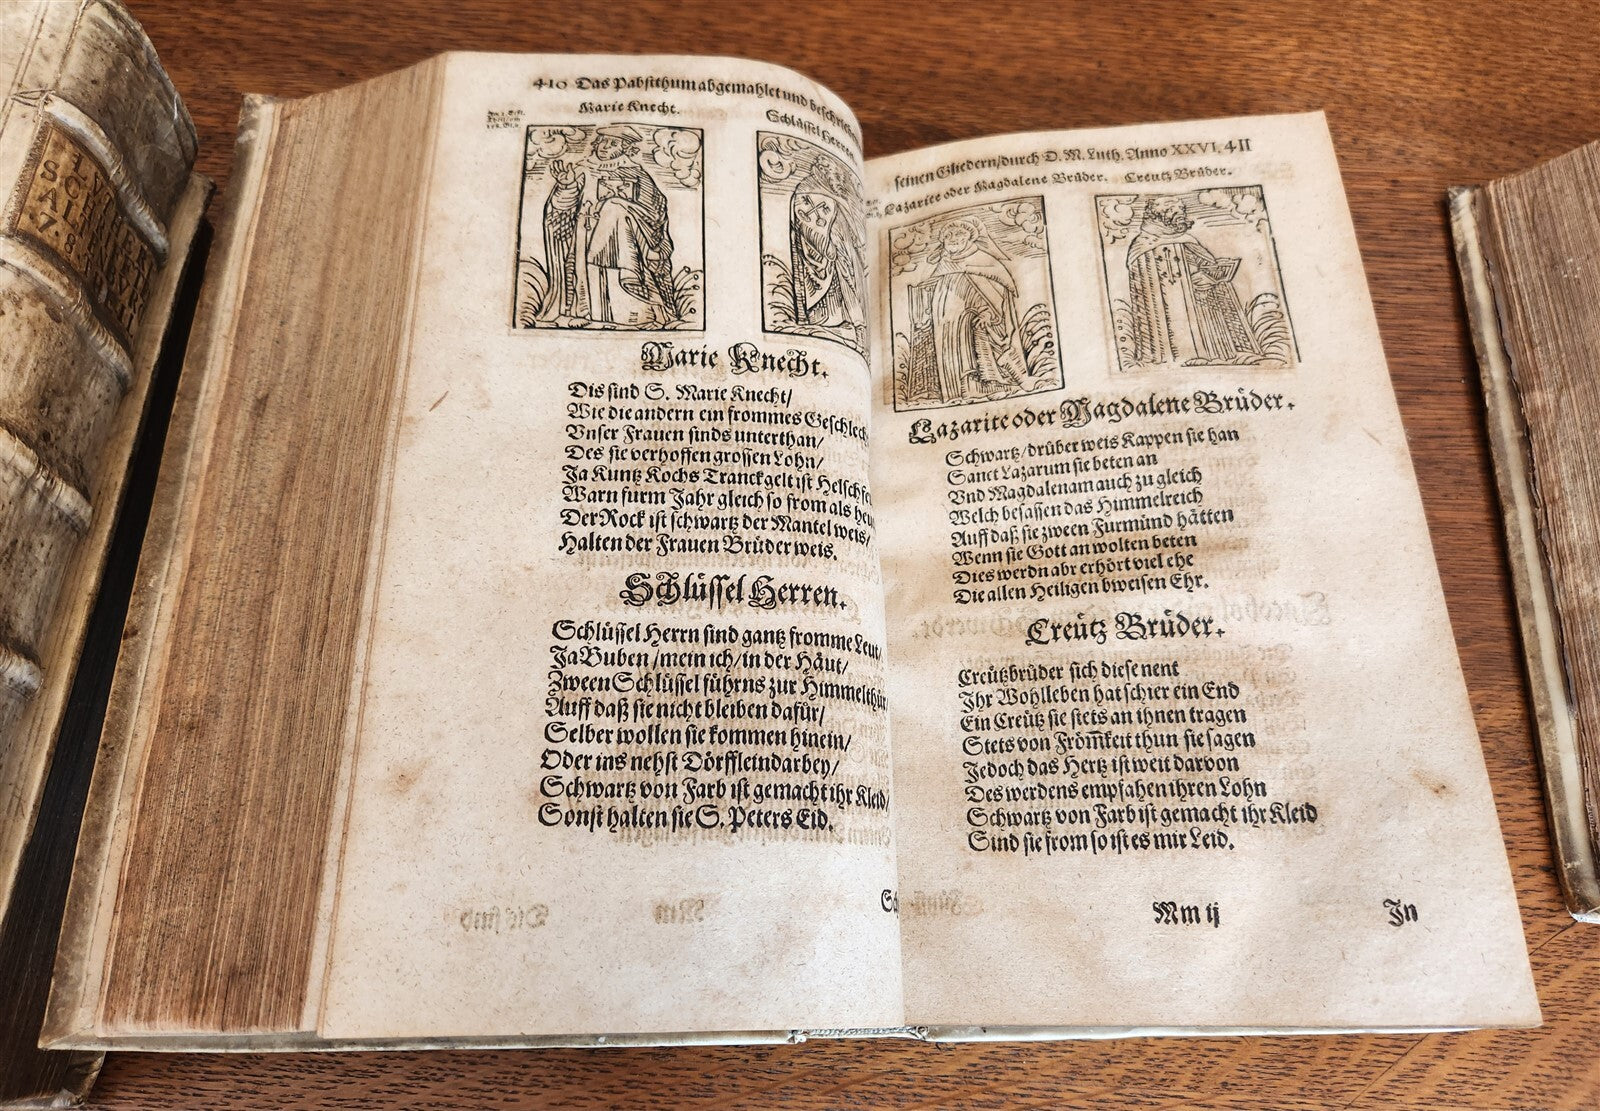 410 Das Pabstthum abgemahlet und beschrieben
Marie Knecht.
Schlüssel Herren.
Marie Knecht.
Dis sind S. Marie Knecht/
Wie die andern ein frommes Geschlech
Vnser Frauen sinds unterthan/
Des sie verhoffen grossen Lohn/
Ja Kuntz Kochs Tranckgelt ist Helsch
Warn furm Jahr gleich so from als heu
Der Rock ist schwartz der Mantel weis/
Halten der Frauen Brüder weis.
Schlüssel Herren.
Schlüssel Herrn sind gantz fromme Leut/
Ja Buben/mein ich/in der Häut/
Zween Schlüssel führns zur Himmelthür
Auff daß sie nicht bleiben dafür/
Selber wollen sie kommen hinein/
Oder ins nehst Dörfflein darbey/
Schwartz von Farb ist gemacht ihr Kleid/
Sonst halten sie S. Peters Eid.
seinen Gliedern/durch D. M. Luth. Anno XXVI. 411
Lazarite oder Magdalene Brüder. Creutz Brüder.
Lazarite oder Magdalene Brüder.
Schwartz/drüber weis Kappen sie han
Sanct Lazarum sie beten an
Vnd Magdalenam auch zu gleich
Welch besassen das Himmelreich
Auff daß sie zween Furmünd hätten
Wenn sie Gott an wolten beten
Dies werdn abr erhört viel ehe
Die allen Heiligen bweisen Ehr.
Creütz Brüder.
Creützbrüder sich diese nent
Ihr Wohlleben hat schier ein End
Ein Creütz sie stets an ihnen tragen
Stets von Fröm̃keit thun sie sagen
Jedoch das Hertz ist weit darvon
Des werdens empfahen ihren Lohn
Schwartz von Farb ist gemacht ihr Kleid
Sind sie from so ist es mir Leid.
Mm ij
In